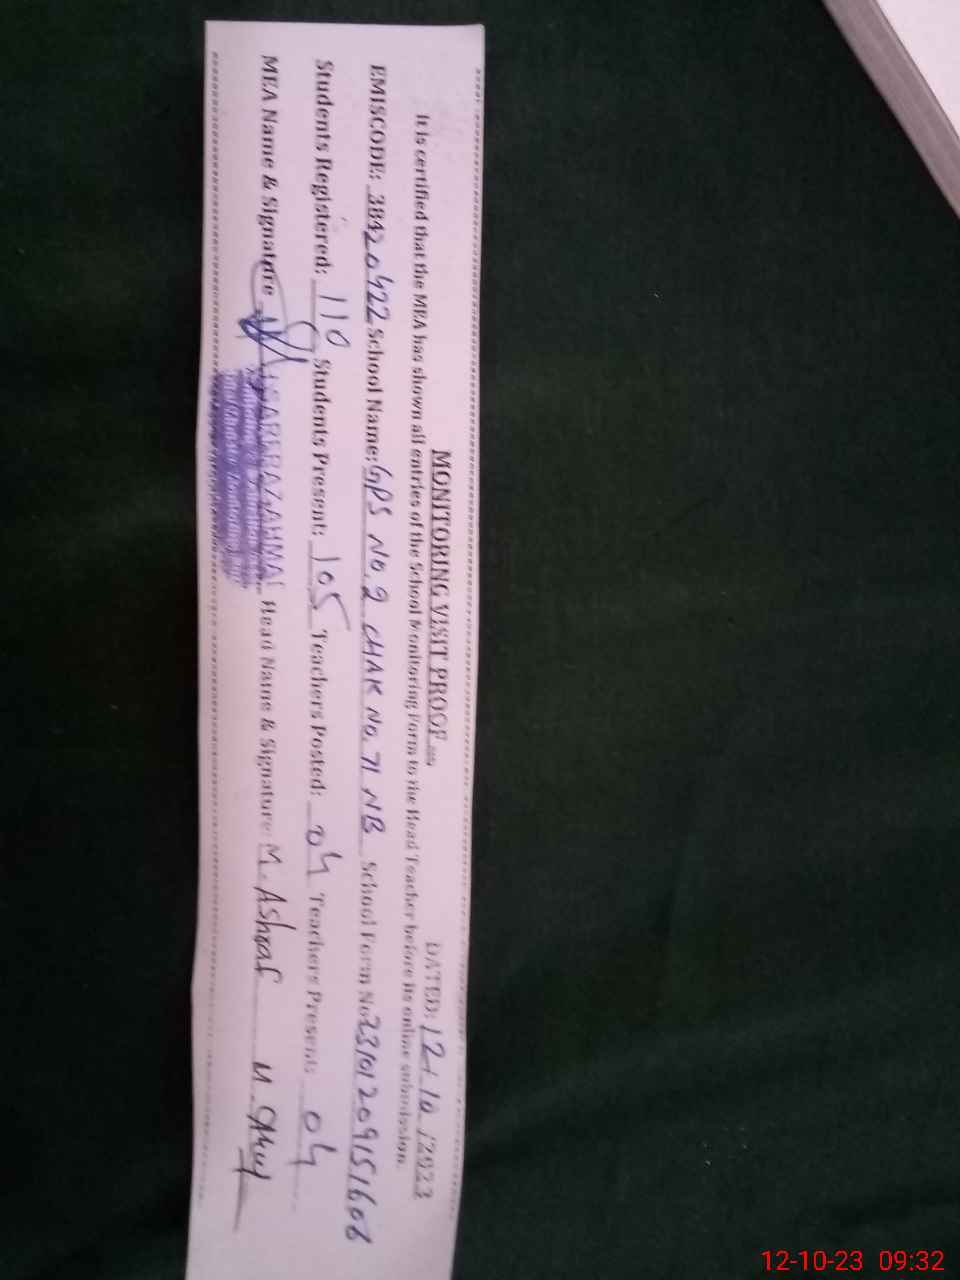 MONITORING VISIT PROOF
DATED: 12-10/2023
It is certified that the MEA has shown all entries of the School Monitoring Form to the Head Teacher before its online submission.
EMISCODE: 38420422 School Name: GPS No. 2 CHAK No. 71 NB School Form No
Students Registered: 110 Students Present: 105 Teachers Posted: 04 Teachers Present: 04
MEA Name & Signature SARFRAZ AHMA Head Name & Signature: M. Ashraf
12-10-23 09:32